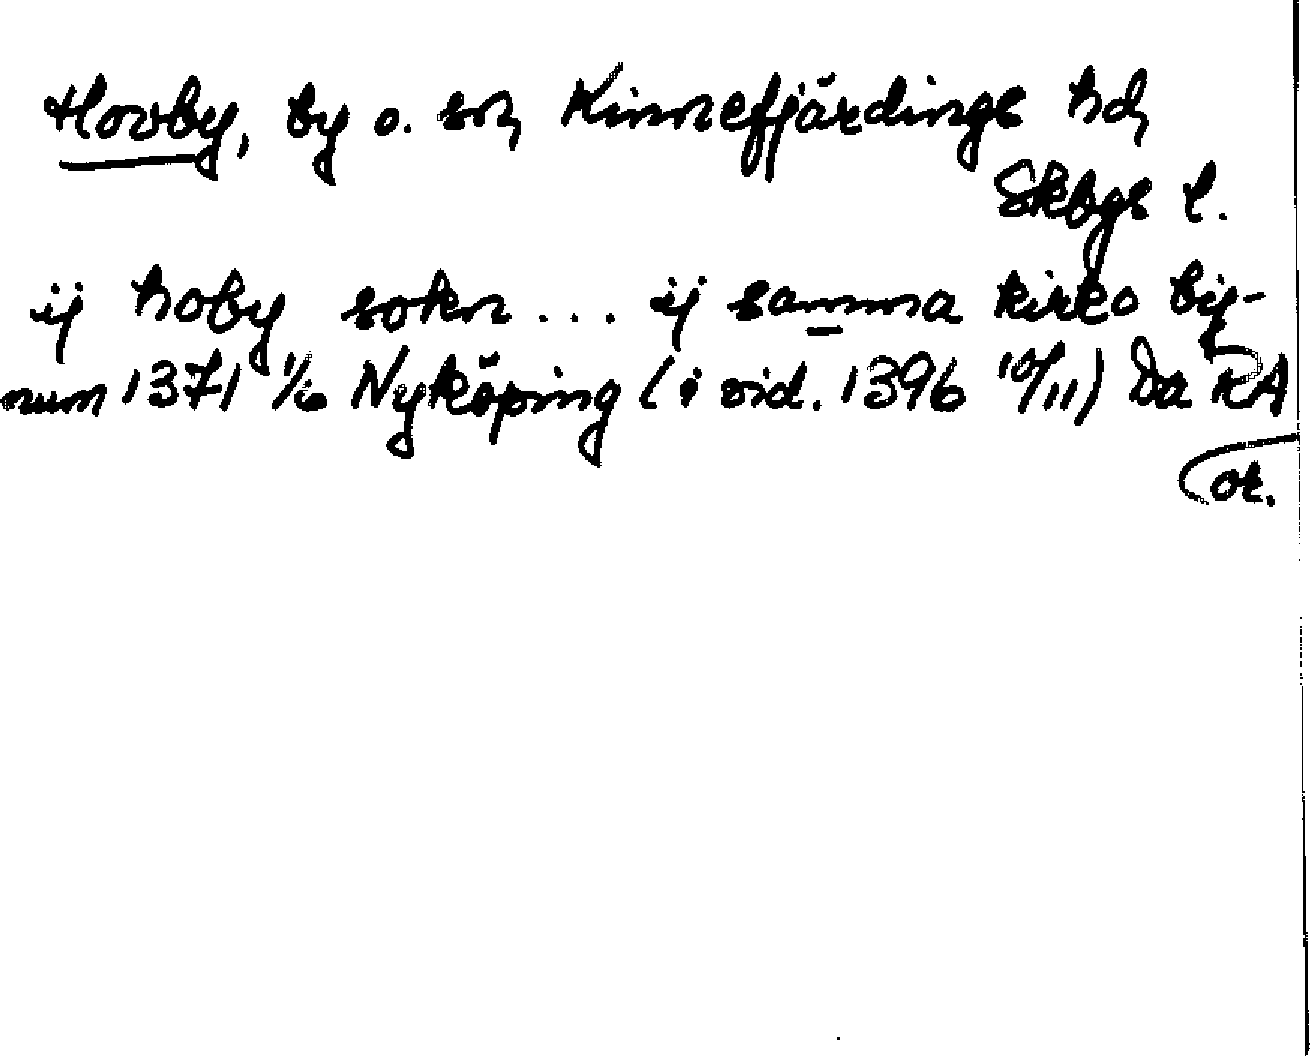 Hovby, by o. sn, Kinnefjärdings hd,
Skbgs l.
ij hoby sokn ... ij samma kirko bij-
num 1371 1/6 Nyköping (i vid. 1396 10/11) Da RA
or.